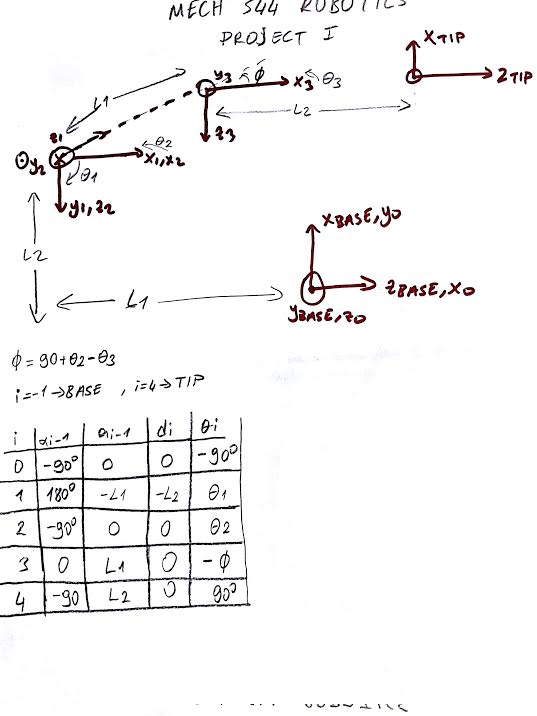 MECH 544 ROBOTICS
PROJECT I
XTIP
y3
ϕ
x3
θ3
ZTIP
L1
L2
z3
z1
θ2
y2
x1,x2
θ1
y1,z2
XBASE,y0
L2
ZBASE,X0
L1
yBASE,z0
ϕ=90+θ2-θ3
i=-1→BASE , i=4→TIP
i αi-1 ai-1 di θi
0 -90° 0 0 -90°
1 180° -L1 -L2 θ1
2 -90° 0 0 θ2
3 0 L1 0 -ϕ
4 -90 L2 0 90°